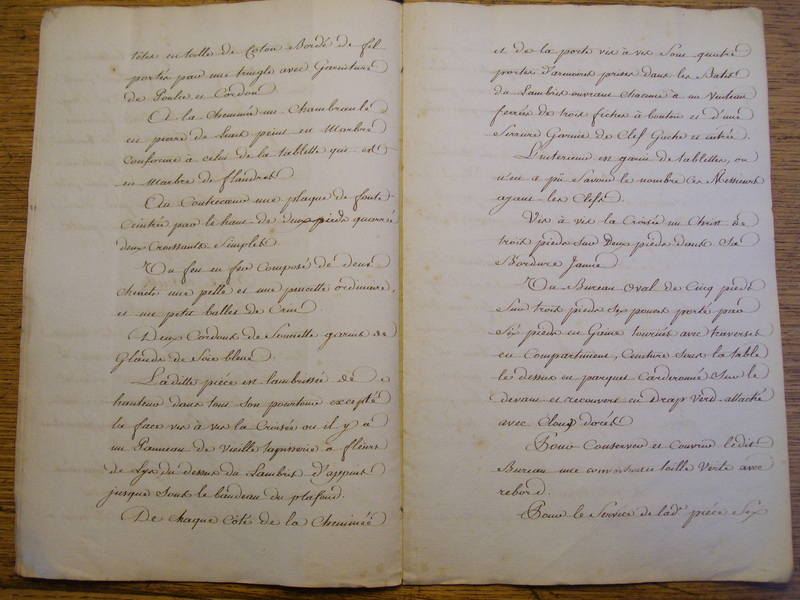 têtes en toille de Coton Bordé de fil
portés par une tringle avec Garniture
de Poulie et Cordon
A la Cheminée un Chambranle
en pierre de Liais peint en Marbre
conforme à celui de la tablette qui est
en Marbre de flandres
Au Contrecoeur une plaque de fonte
Ceintrée par le haut de deux pieds quarré
deux Croissants Simples
Un feu en fer Composé de deux
chenets une pelle et une pincette ordinaire
et un petit ballet de Crin
Deux Cordons de Sonnette garnis de
Glands de Soie bleue
La ditte piéce est lambrissée de
hauteur dans tout son pourtour excepté
la face vis à vis la Croisée ou il y a
un Panneau de Vieille tapisserie a fleurs
de Lys du dessus du Lambris d'appui
jusque sous le bandeau du plafond.
De chaque Côté de la Cheminée
et de la porte vis à vis Sont quatre
portes d'armoires prises dans les Batis
du Lambris ouvrant chacune à un Venteau
ferrées de trois fiches à bouton et d'une
Serrure Garnie de Clef Gache et entrée.
L'interieur est garni de tablettes, on
n'en a pû Savoir le nombre ces Messieurs
ayant les Clefs.
Vis à vis la Croisée un Christ de
trois pieds Sur Deux pieds dans Sa
Bordure Jaune
Un Bureau Oval de Cinq pieds
Sur trois pieds Six pouces porté par
Six pieds en Gaine tournés avec traverses
en Compartiment, Ceinture Sous la table
le dessus en parquet Carderonné Sur le
devant et recouvert en Drap Verd attaché
avec Cloux dorés
Pour Conserver et Couvrir ledit
Bureau une couverture toille Verte avec
rebord.
Pour le Service de lad.e piéce Six